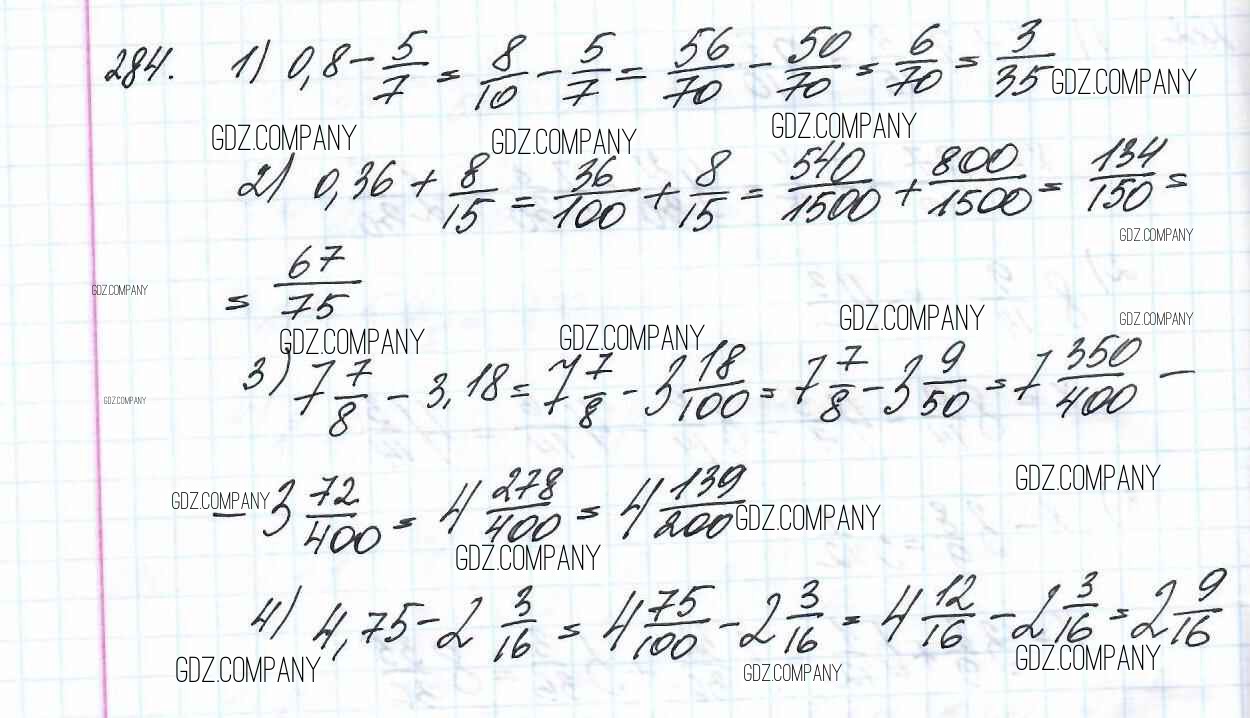 284. 1) 0,8 - 5/7 = 8/10 - 5/7 = 56/70 - 50/70 = 6/70 = 3/35
GDZ.COMPANY
GDZ.COMPANY GDZ.COMPANY GDZ.COMPANY
2) 0,36 + 8/15 = 36/100 + 8/15 = 540/1500 + 800/1500 = 134/150 =
GDZ.COMPANY
= 67/75
GDZ.COMPANY
GDZ.COMPANY GDZ.COMPANY GDZ.COMPANY GDZ.COMPANY
3) 7 7/8 - 3,18 = 7 7/8 - 3 18/100 = 7 7/8 - 3 9/50 = 7 350/400 -
GDZ.COMPANY
- 3 72/400 = 4 278/400 = 4 139/200
GDZ.COMPANY GDZ.COMPANY GDZ.COMPANY
GDZ.COMPANY
4) 4,75 - 2 3/16 = 4 75/100 - 2 3/16 = 4 12/16 - 2 3/16 = 2 9/16
GDZ.COMPANY GDZ.COMPANY GDZ.COMPANY